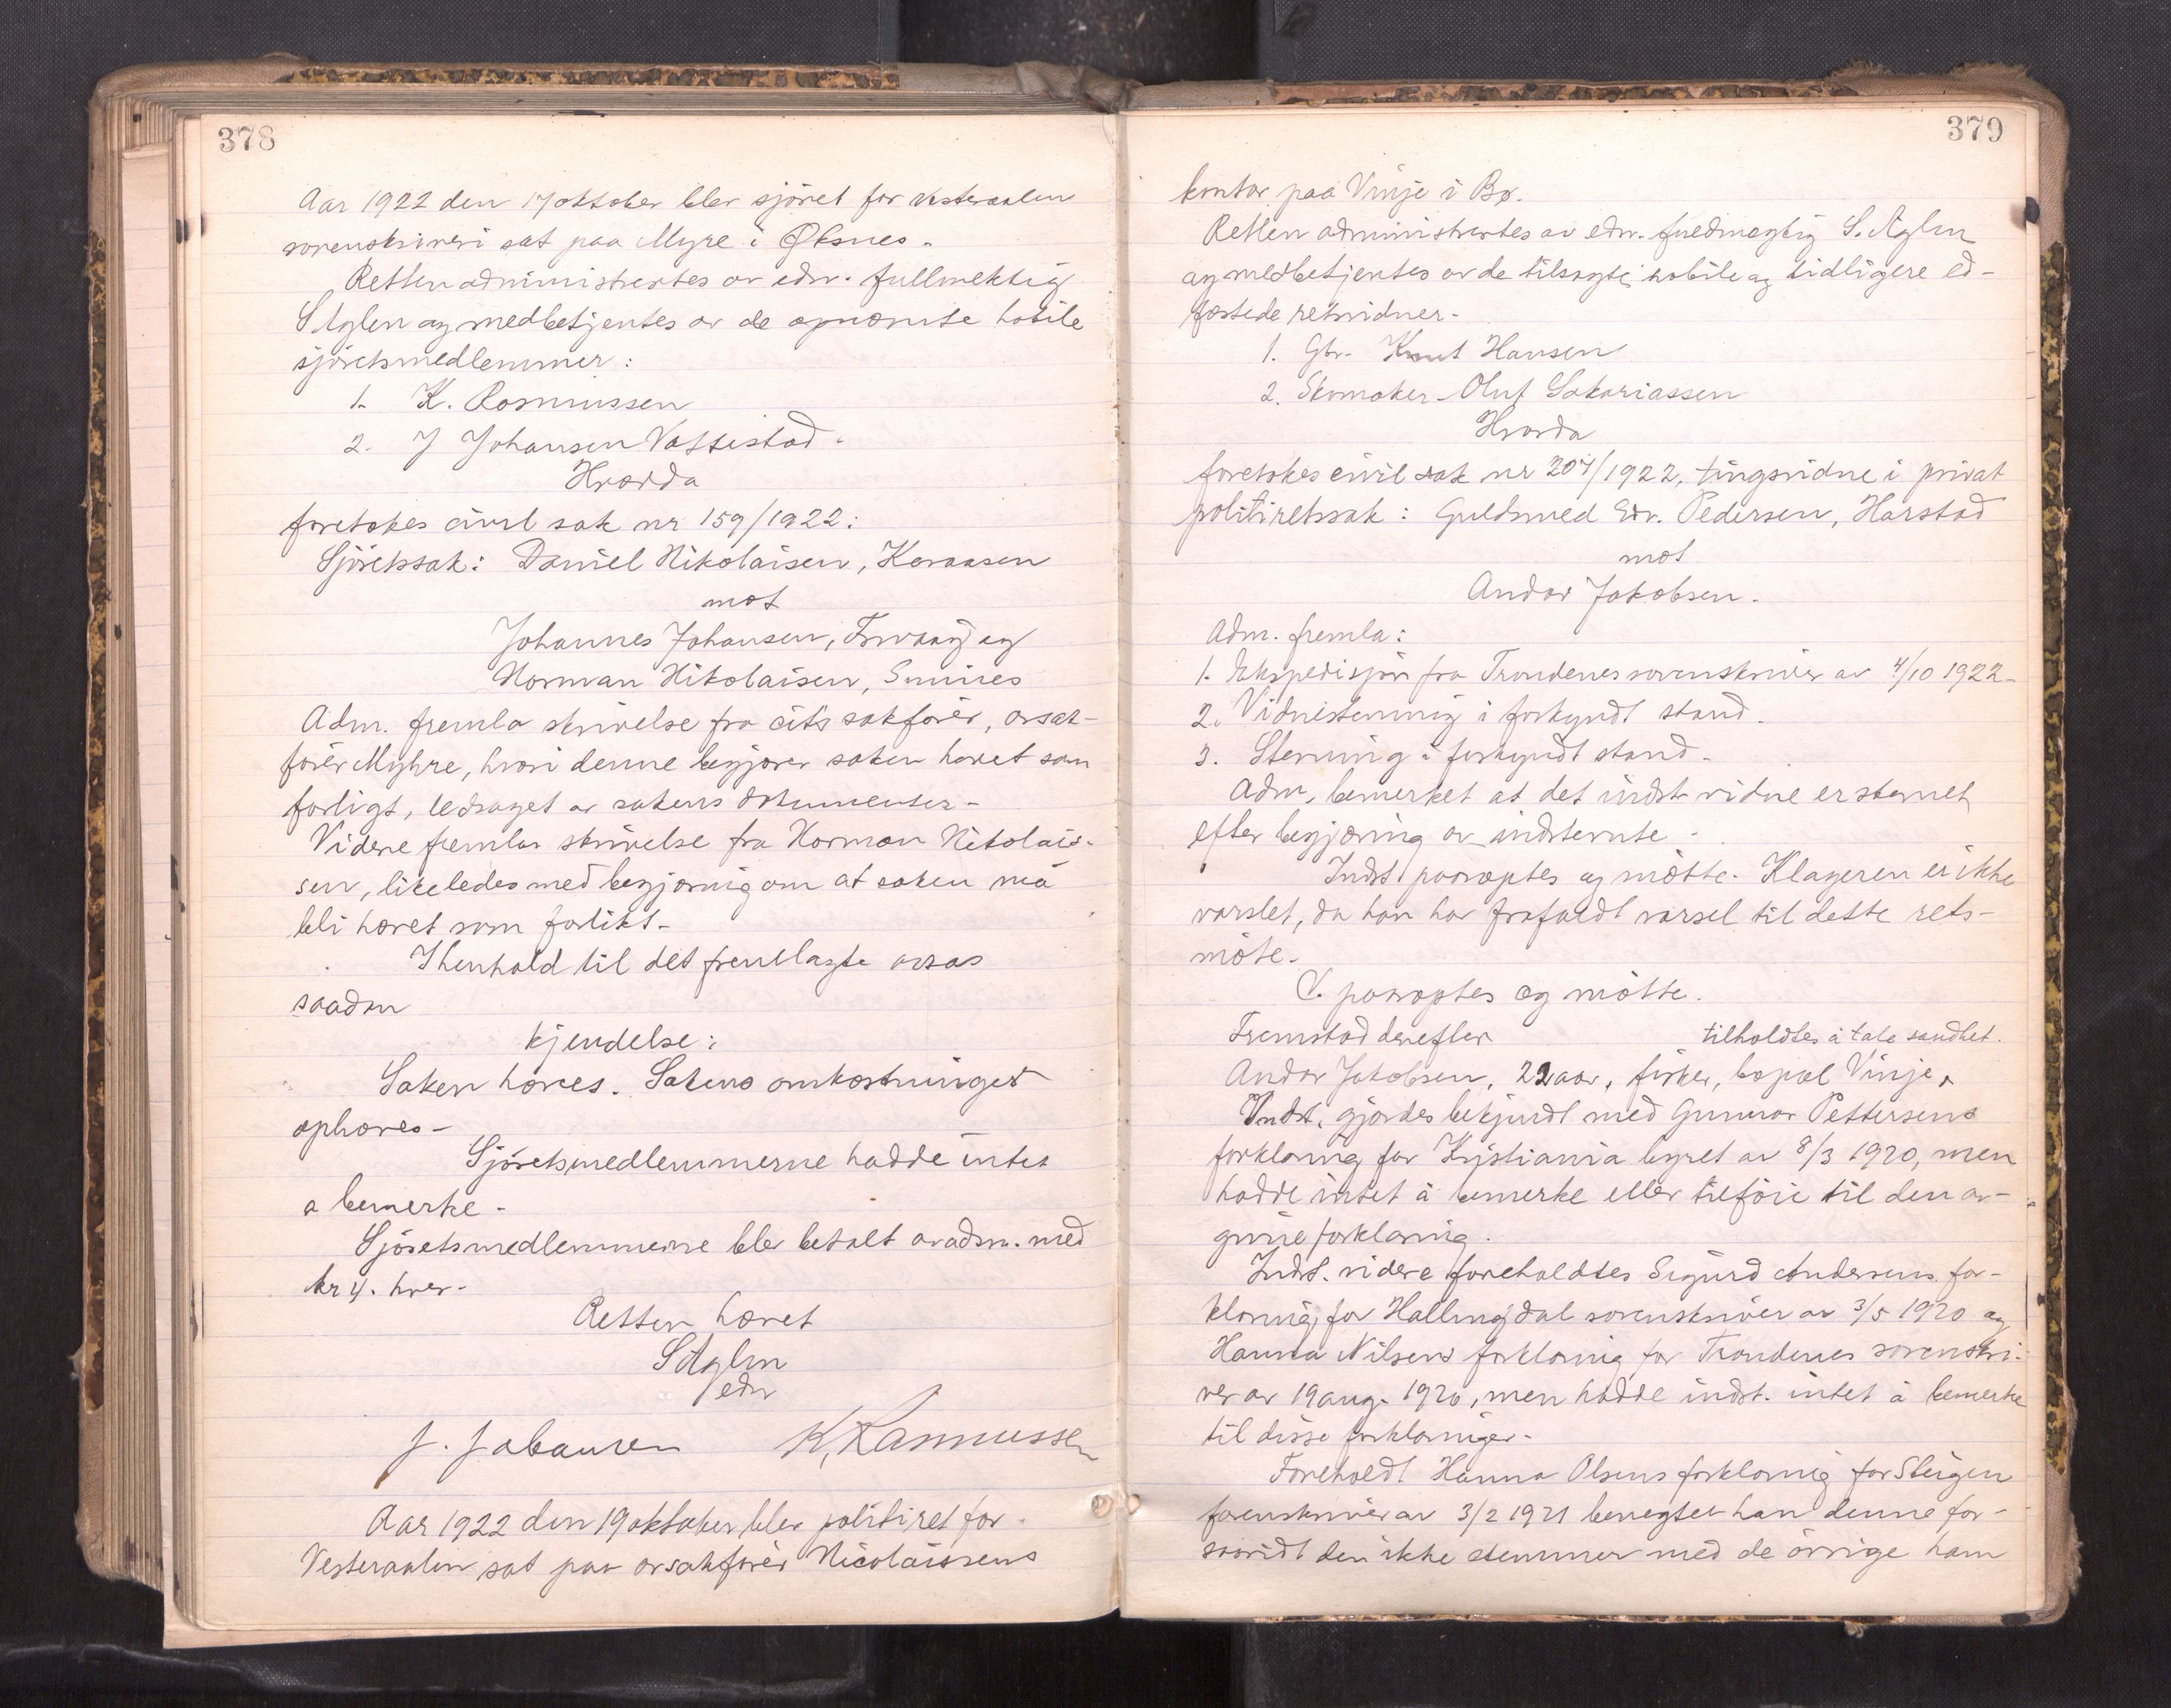 378
Aar 1922 den 17 oktober blev sjöret for Vesteraalen
sorenskriveri sat paa Myre i Øksnes.
Retten administrertes av edsv. fullmektig
S Aglen og medbetjentes av de opnævnte habile
sjöretsmedlemmer:
1. K. Rasmussen
2. J Johansen Vottestad.
Hvorda
foretokes civil sak nr 159/1922:
Sjöretssak: Daniel Nikolaisen,
mot
Johannes Johansen, og
Norman Nikolaisen,
Adm. fremla skrivelse fra cit's sakförer, orsak-
förer Myhre, hvori denne begjærer saken hævet som
forligt, ledsaget av sakens dokumenter.
Videre fremla skrivelse fra Norman Nikolais-
sen, likeledes med begjæring om at saken må
bli hævet som forlikt.
I henhold til det fremlagte avsas
saadan
kjendelse:
Saken hæves. Sakens omkostninger
ophæves.
Sjöretsmedlemmerne hadde intet
a bemerke.
Sjöretsmedlemmerne blev betalt av adm. med
kr 4. hver.
Retten hævet
S Aglen
edsv
J. Johansen K. Rasmussen
Aar 1922 den 19 oktober blev politiret for
Vesteraalen sat paa orsakförer Nicolaissens
379
kontor paa Vinje i Bø.
Retten administrertes av edsv. fuldmægtig S. Aglen
og medbetjentes av de tilsagte, habile og tidligere ed-
fæstede retsvidner.
1. Gbr. Knut Hansen
2. Skomaker Oluf Sakariassen
Hvorda
foretokes civil sak nr 207/1922, tingsvidne i privat
politiretssak: Guldsmed Edv. Pedersen, Harstad
mot
Andor Jakobsen.
Adm. fremla:
1. Ekspedisjon fra Trondenes sorenskriver av 4/10 1922.
2. Vidnestevning i forkyndt stand.
3. Stevning i forkyndt stand.
Adm. bemerket at det indst. vidne er stevnet
efter begjæring av indstevnte.
Indst. paaroptes og mötte. Klageren er ikke
varslet, da han har frafaldt varsel til dette rets-
möte.
V. paaroptes og mötte.
Fremstod derefter tilholdtes å tale sandhet.
Andor Jakobsen, 22 aar, fisker, bopæl Vinje.
Indst. gjordes bekjendt med Gunnar Pettersens
forklaring for Kristiania byret av 8/3 1920, men
hadde intet å bemerke eller tilföie til den av-
givne forklaring.
Indst. videre foreholdtes Sigurd Andersens for-
klaring for Hallingdal sorenskriver av 3/5 1920 og
Hanna Nilsens forklaring for Trondenes sorenskri-
ver av 19 aug. 1920, men hadde indst. intet å bemerke
til disse forklaringer.
Foreholdt Hanna Olsens forklaring for Steigen
sorenskriver av 3/2 1921 benegtet han denne for-
saavidt den ikke stemmer med de övrige ham